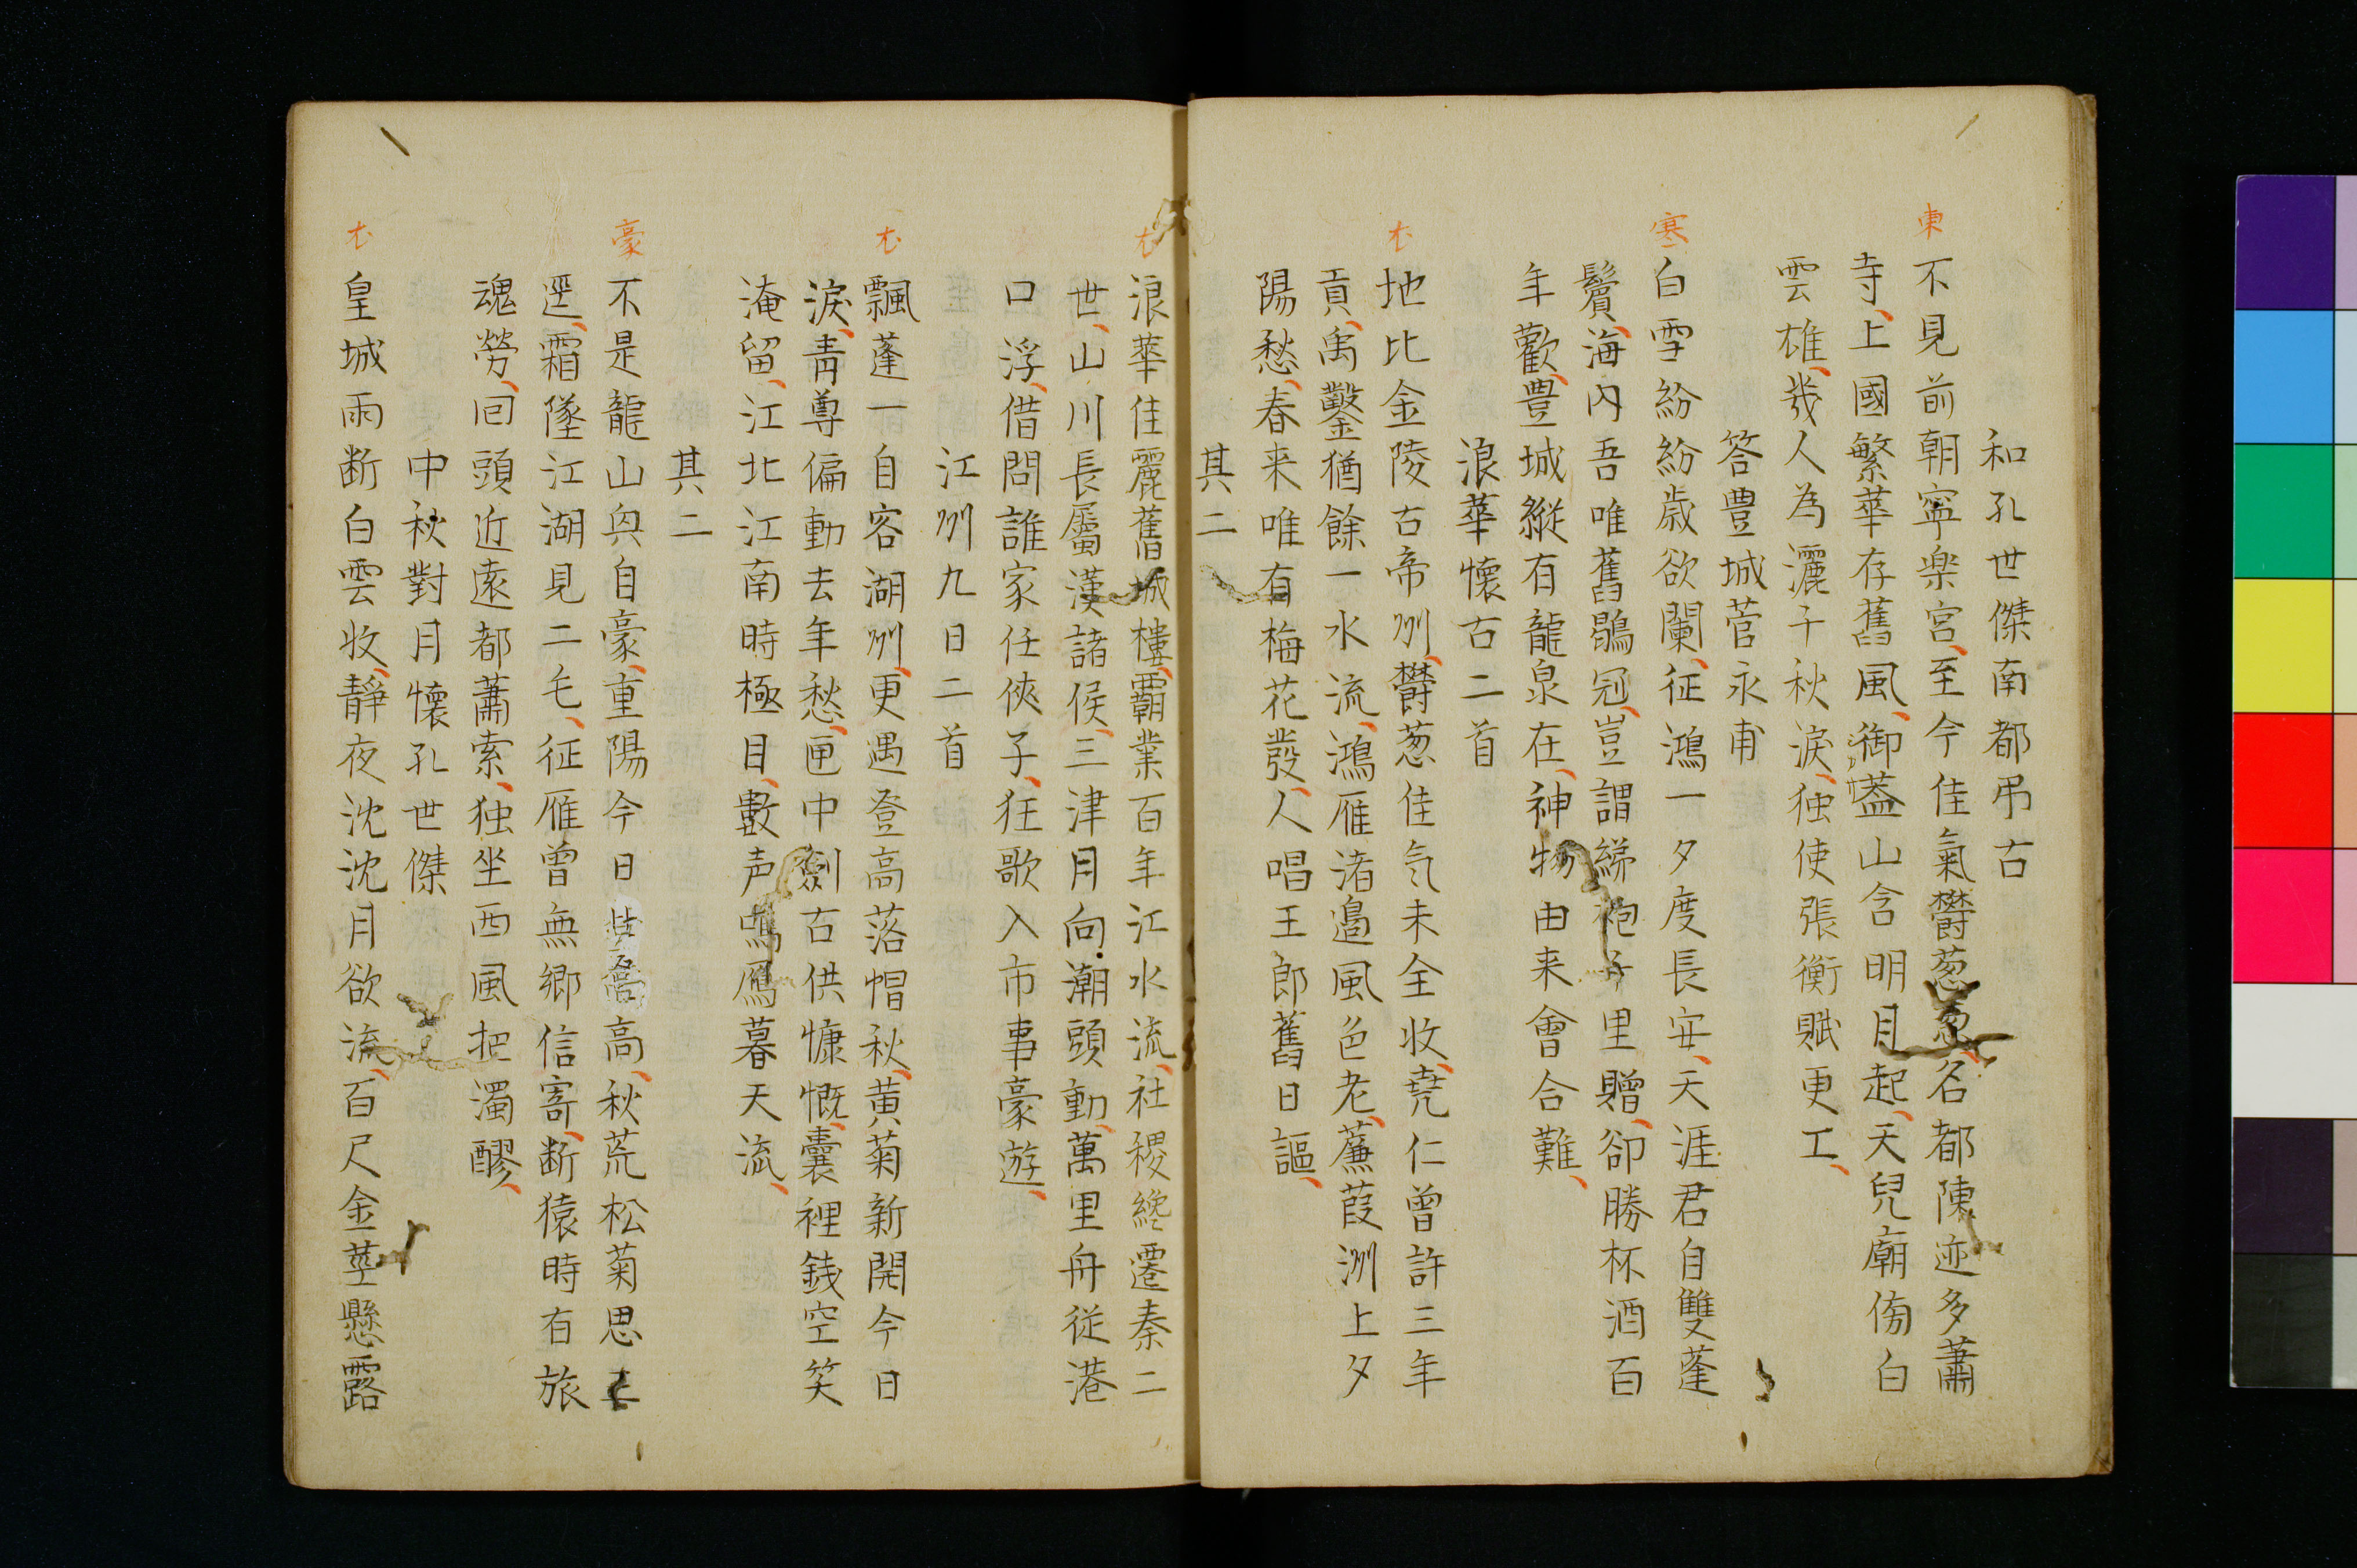 和孔世傑南都弔古
東
不見前朝寧楽宮至今佳氣欝葱葱名都陳迹多蕭
寺上國繁華存舊風御葢山含明月起天兒廟傍白
雲雄幾人為灑千秋淚独使張衡賦更工
答豊城菅永甫
寒
白雪紛紛歳欲闌征鴻一夕度長安天涯君自雙蓬
鬢海内吾唯舊鶡冠豈謂綈袍千里贈卻勝杯酒百
年歡豊城縦有龍泉在神物由来會合難
浪華懷古二首
尤
地比金陵古帝州欝葱佳气未全收堯仁曽許三年
貢禹鑿猶餘一水流鴻雁渚邉風色老蘆葭洲上夕
陽愁春来唯有梅花發人唱王郎舊日謳
其二
尤
浪華佳麗舊城樓覇業百年江水流社稷纔遷秦二
世山川長屬漢諸侯三津月向潮頭動萬里舟従港
口浮借問誰家任俠子狂歌入市事豪遊
江州九日二首
尤
飄蓬一自客湖州更遇登高落帽秋黄菊新開今日
淚青尊偏動去年愁匣中劍古供慷慨囊裡銭空笑
淹留江北江南時極目數声鳴鴈暮天流
其二
豪
不是龍山興自豪重陽今日共高秋荒松菊思三
逕霜墜江湖見二毛征雁曽無郷信寄断猿時有旅
魂勞回頭近遠都蕭索独坐西風把濁醪
中秋對月懷孔世傑
尤
皇城雨断白雲收靜夜沈沈月欲流百尺金莖懸露